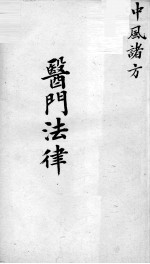 中風諸方
醫門法律